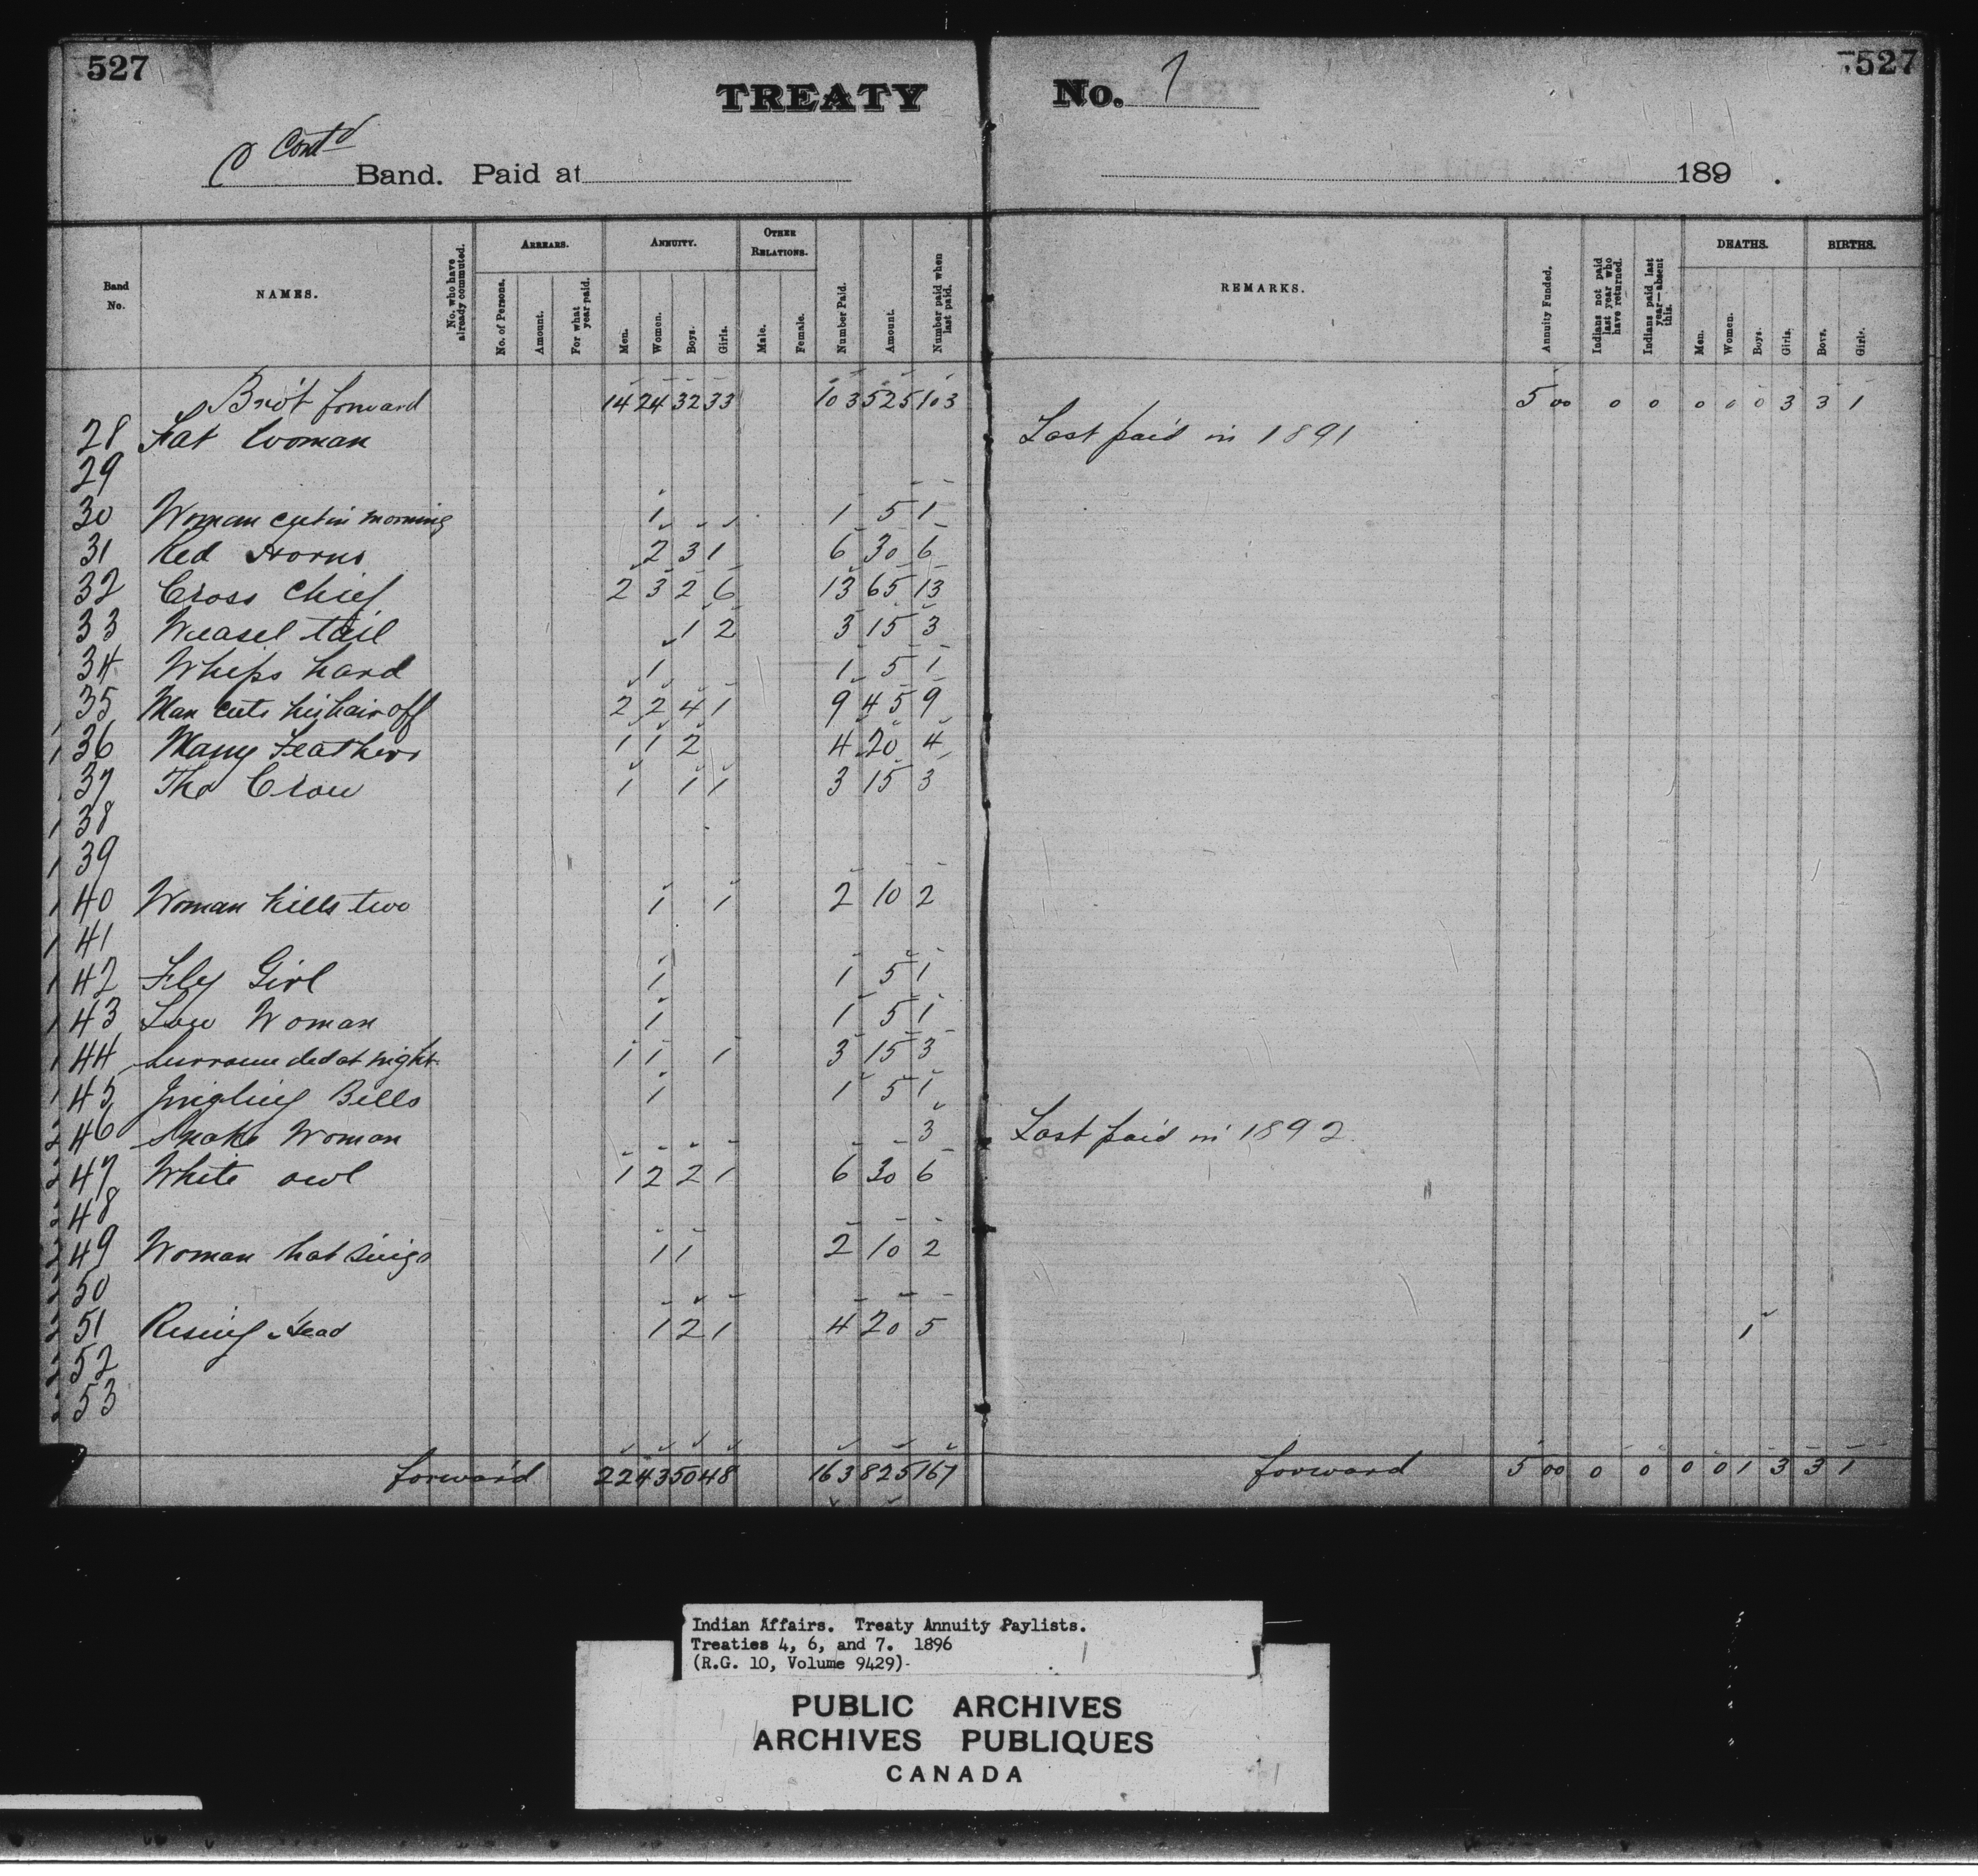 527
527
TREATY No. 7
C Cont'd Band. Paid at 189 .
Band No.
NAMES.
No. who have already commuted.
ARREARS.
No. of Persons.
Amount.
For what year paid.
ANNUITY.
Men.
Women.
Boys.
Girls.
OTHER RELATIONS.
Male.
Female.
Number Paid.
Amount.
Number paid when last paid.
REMARKS.
Annuity Funded.
Indians not paid last year who have returned.
Indians paid last year—absent this.
DEATHS.
Men.
Women.
Boys.
Girls.
BIRTHS.
Boys.
Girls.
Bro't forward 14 24 32 33 103 525 103 5 00 0 0 0 0 0 3 3 1
28 Fat Woman Last paid in 1891
29
30 Woman cut in morning 1 1 5 1
31 Red Horns 2 3 1 6 30 6
32 Cross Chief 2 3 2 6 13 65 13
33 Weasel tail 1 2 3 15 3
34 Whips hard 1 1 5 1
35 Man cuts his hair off 2 2 4 1 9 45 9
36 Many Feathers 1 1 2 4 20 4
37 The Crow 1 1 1 3 15 3
38
39
40 Woman kills two 1 1 2 10 2
41
42 Fly Girl 1 1 5 1
43 Low Woman 1 1 5 1
44 Surrounded at night 1 1 1 3 15 3
45 Jingling Bells 1 1 5 1
46 Snake Woman 3 Last paid in 1892
47 White owl 1 2 2 1 6 30 6
48
49 Woman hat Sings 1 1 2 10 2
50
51 Rising Head 1 2 1 4 20 5 1
52
53
forward 22 43 50 48 163 825 167 forward 5 00 0 0 0 0 1 3 3 1
Indian Affairs. Treaty Annuity Paylists.
Treaties 4, 6, and 7. 1896
(R.G. 10, Volume 9429)
PUBLIC ARCHIVES
ARCHIVES PUBLIQUES
CANADA